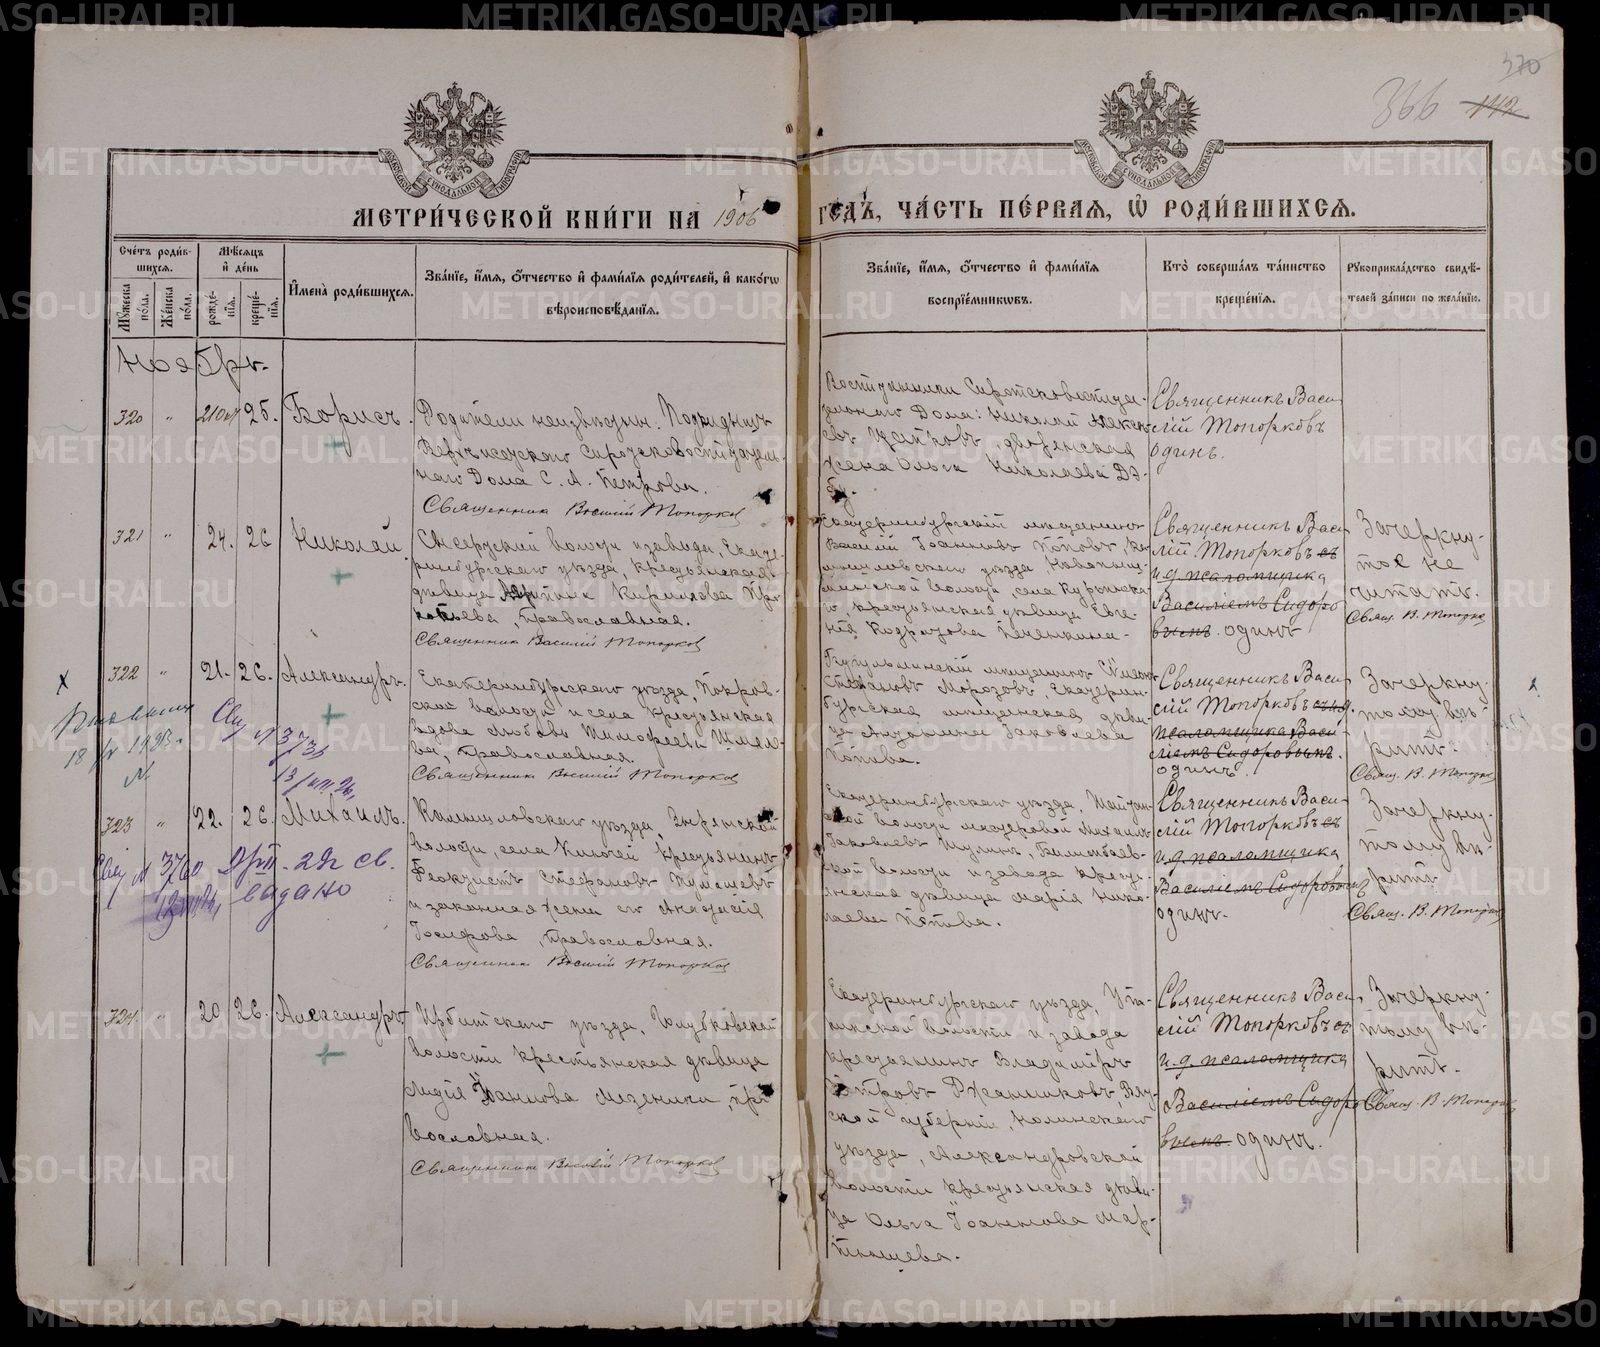 370
366 142
МЕТРИ́ЧЕСКОЙ КНИ́ГИ НА 1906 ГОДЪ, ЧА́СТЬ ПЕ́РВАЯ, Ѡ РОДИ́ВШИХСЯ.
Сче́тъ роди́в-
шихся.
Му́жеска по́ла.
Же́нска по́ла.
Мѣ́сяцъ
и де́нь
рожде́-
нїя.
креще́-
нїя.
Имена̀ роди́вшихся.
Зва́нїе, и́мя, о́тчество и фами́лїя роди́телей, и како́гѡ
вѣроисповѣ́данїя.
Зва́нїе, и́мя, о́тчество и фами́лїя
воспрїе́мниковъ.
Кто̀ соверша́лъ та́инство
креще́нїя.
Рукоприкла́дство свидѣ́-
телей за́писи по жела́нїю.
Ноябрь.
320 " 21 окт 25. Борисъ.
Родители неизвѣстны. Подкидышъ
Верхъисетскаго сиротсковоспитатель-
наго Дома С. А. Петрова.
Священникъ Василій Топорковъ
Воспитанники Сиротсковоспита-
тельнаго Дома: Николай Алексѣ-
евъ, дворянская
жена Ольга Николаева
Священникъ Васи-
лій Топорковъ
одинъ.
321 " 24. 26 Николай
Сысертской волости и завода, Екате-
ринбургскаго уѣзда, крестьянская
дѣвица Кирилова Про-
копьева, православная.
Священникъ Василій Топорковъ
Екатеринбургскій мѣщанинъ
Василій Іоанновъ Поповъ, Ка-
мышловскаго уѣзда Новопыш-
минской волости, села Курьинска-
го крестьянская дѣвица Евге-
нія Кодратова Печенкина.
Священникъ Васи-
лій Топорковъ съ
и. д. псаломщика
Василіемъ Сидоро-
вымъ. одинъ
Зачеркну-
тое не
читать.
Свящ. В. Топорковъ
322 " 21. 26. Александръ.
Екатеринбургскаго уѣзда, Покров-
ской волости и села крестьянская
вдова Любовь Тимофеева
православная.
Священникъ Василій Топорковъ
Бугульминскій мѣщанинъ
Стефановъ Морозовъ, Екатерин-
бургская мѣщанская дѣви-
ца Яковлева
Попова.
Священникъ Васи-
лій Топорковъ съ и. д.
псаломщика Васи-
ліемъ Сидоровымъ.
одинъ.
Зачеркну-
тому вѣ-
рить.
Свящ. В. Топорковъ
18
Свид № 3735
323 " 22. 26. Михаилъ.
Камышловскаго уѣзда, Знаменской
волости, села Ключей крестьянинъ
Феоктистъ Стефановъ
и законная жена его Анастасія
Іосифова, православная.
Священникъ Василій Топорковъ
Екатеринбургскаго уѣзда, Шайтан-
ской волости мастеровой Михаилъ
Яковлевъ, Билимбаев-
ской волости и завода кресть-
янская дѣвица Марія Нико-
лаева Попова.
Священникъ Васи-
лій Топорковъ съ
и. д. псаломщика
Василіемъ Сидоровымъ
одинъ.
Зачеркну-
тому вѣ-
рить
Свящ. В. Топорковъ
Свид № 3760
св.
выдано
324. " 20 26. Александръ
Ирбитскаго уѣзда, Голубковской
волости крестьянская дѣвица
Лидія Іоаннова Мезенина, пра-
вославная.
Священникъ Василій Топорковъ
Екатеринбургскаго уѣзда, Утки-
нской волости и завода
крестьянинъ Владиміръ
Петровъ, Вят-
ской губерніи, Нолинскаго
уѣзда, Александровской
волости крестьянская дѣви-
ца Ольга Іоаннова Мар-
тюшева.
Священникъ Васи-
лій Топорковъ съ
и. д. псаломщика
Василіемъ Сидоро-
вымъ. одинъ.
Зачеркну-
тому вѣ-
рить.
Свящ. В. Топорковъ
METRIKI.GASO-URAL.RU